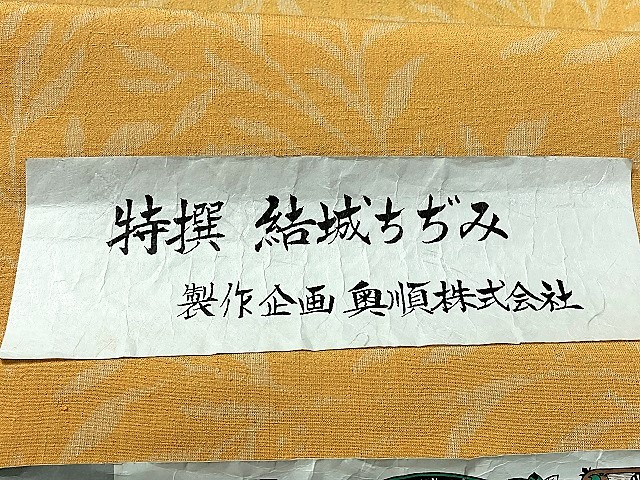 特撰 結城ちぢみ
製作企画 奥順株式会社